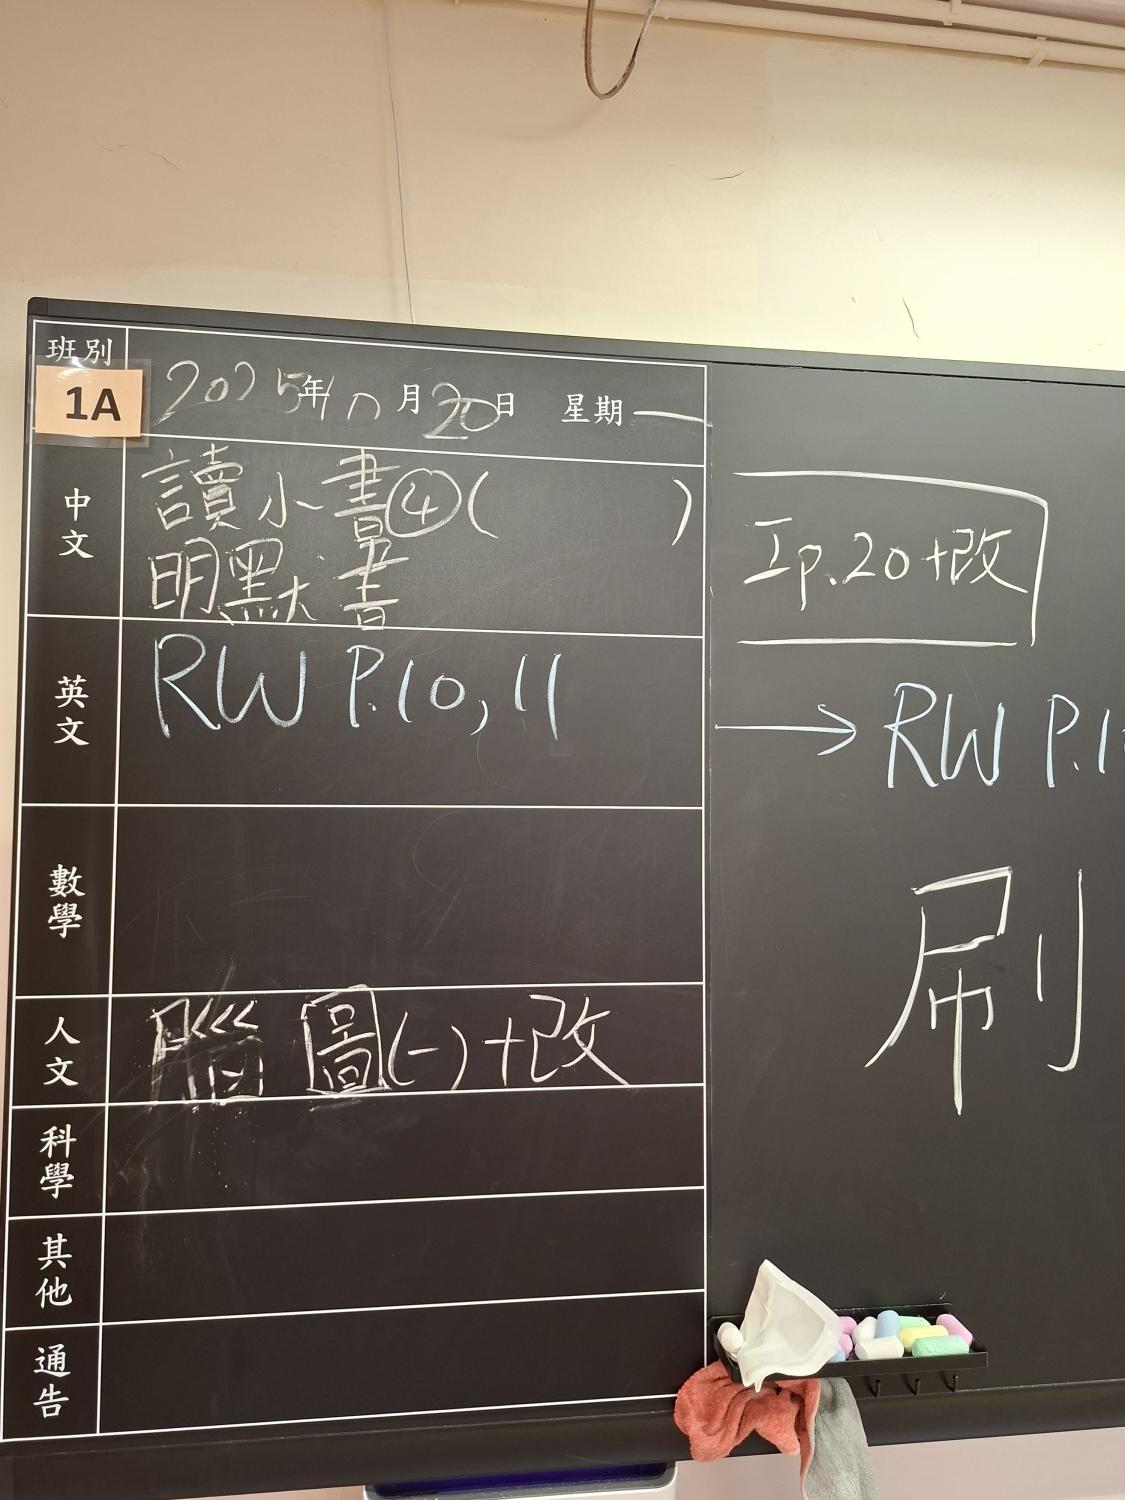 班別
1A
2025年10月20日 星期一
中文
讀小書④( )
明默書
英文
RW P.10,11
數學
人文
腦圖(一)+改
科學
其他
通告
工p.20+改
→ RW P.1
刷